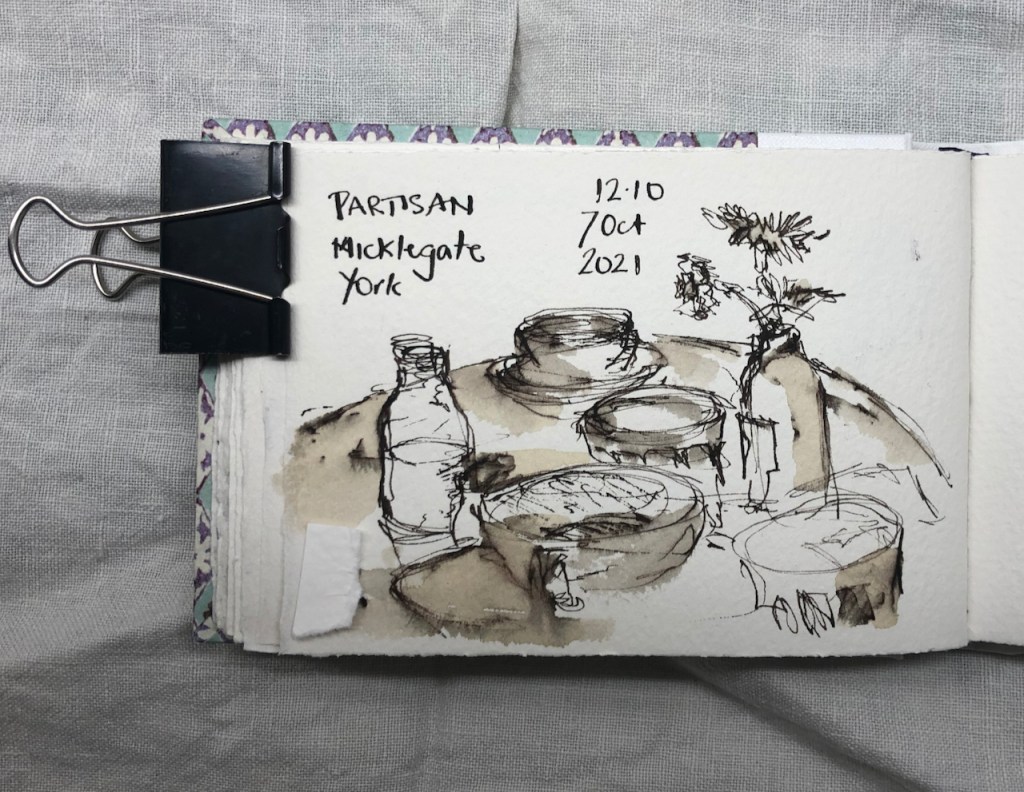 PARTISAN
Micklegate
York
12.10
7 Oct
2021